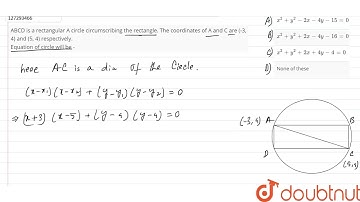 127293466
ABCD is a rectangular A circle circumscribing the rectangle. The coordinates of A and C are (-3,
4) and (5, 4) respectively.
Equation of circle will be -
A) x² + y² − 2x − 4y − 15 = 0
B) x² + y² − 2x − 4y − 16 = 0
C) x² + y² + 2x + 4y − 4 = 0
D) None of these
here AC is a dia of the Circle.
(x-x₁)(x-x₂) + (y-y₁)(y-y₂) = 0
⇒ (x+3)(x-5) + (y-4)(y-4) = 0
(-3, 4) A B
D C
(5,4)
doubtnut